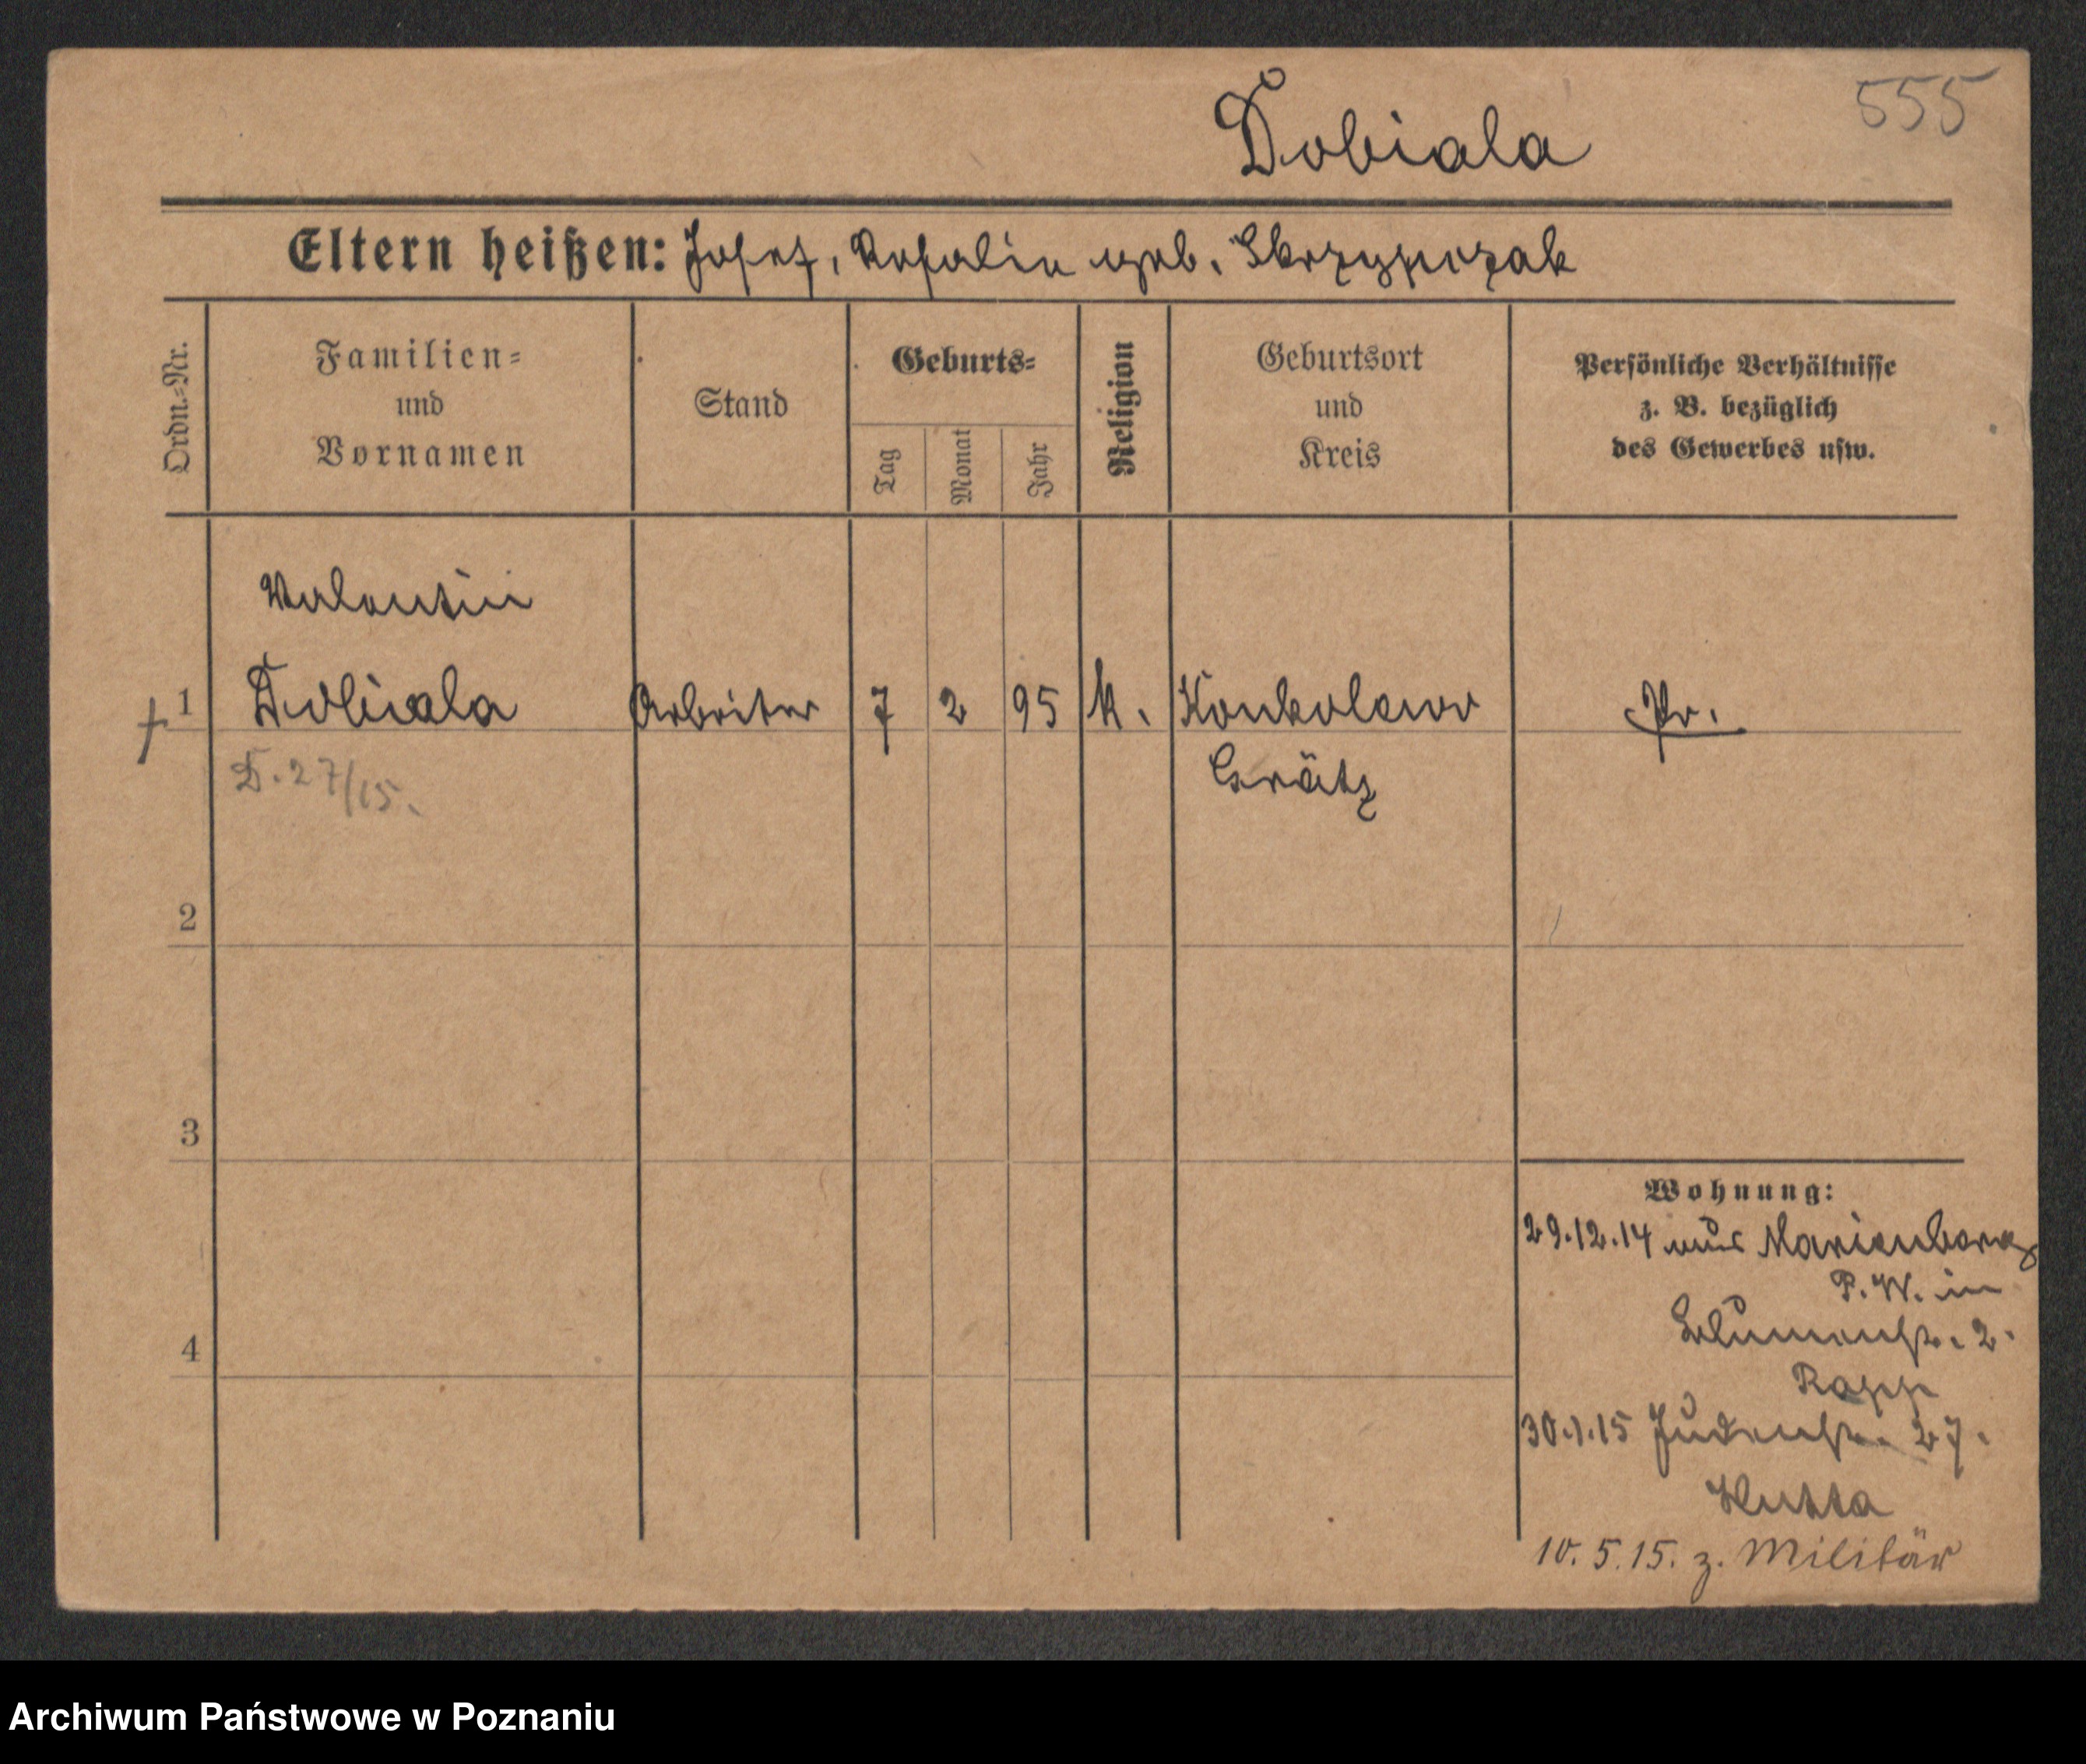 555
Dobiala
Eltern heißen: Josef, Rosalie geb. Skrzypczak
Ordn.-Nr.
Familien-
und
Vornamen
Stand
Geburts-
Tag
Monat
Jahr
Religion
Geburtsort
und
Kreis
Persönliche Verhältnisse
z. B. bezüglich
des Gewerbes usw.
Valentin
1 Dobiala Arbeiter 7 2 95 k. Konkolewo Pr.
D. 27/15.
Grätz
2
3
4
Wohnung:
29.12.14 aus Marienberg
P.W. in
Blumenstr. 2.
Rapp
30.1.15 Judenstr. 27.
Hutta
10.5.15. z. Militär
Archiwum Państwowe w Poznaniu